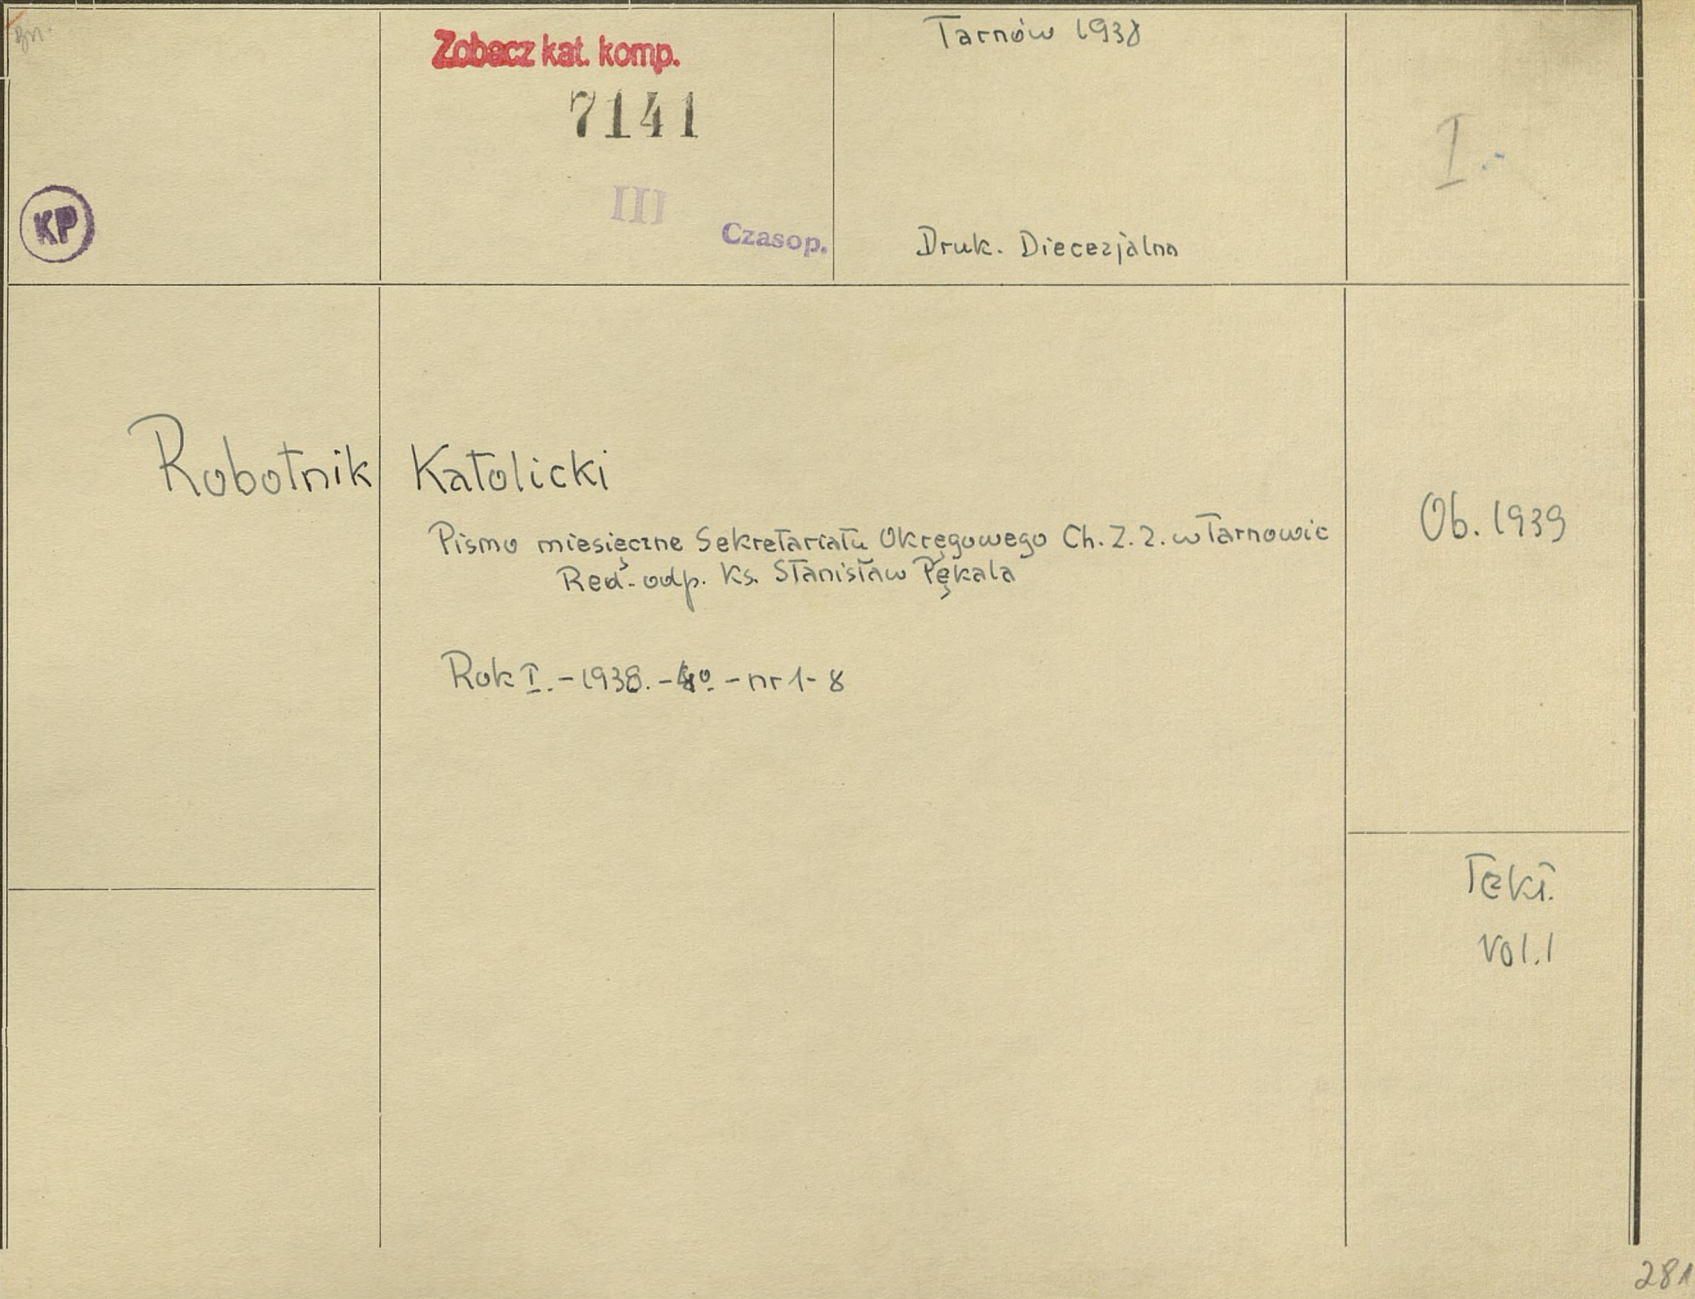 Zobacz kat. komp.
7141
III
Czasop.
KP
Tarnów 1938
Druk. Diecezjalna
I.-
Robotnik Katolicki
Pismo miesięczne Sekretariatu Okręgowego Ch. Z. Z. w Tarnowie
Red. odp. Ks. Stanisław Pękala
Rok I. - 1938. - 4º. - nr 1-8
Ob. 1939
Tekt.
Vol. 1
281